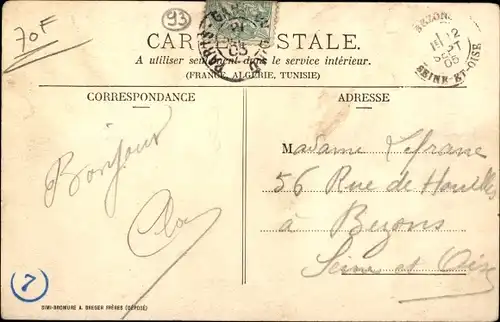 70F
93
CARTE POSTALE.
A utiliser seulement dans le service intérieur.
(FRANCE, ALGÉRIE, TUNISIE)
BEZONS
12
SEPT
05
SEINE-ET-OISE
CORRESPONDANCE
ADRESSE
Bonjour
Madame Lefranc
56 Rue de Houilles
à Bezons
Seine et Oise
7
SIMI-BROMURE A. BREGER FRÈRES (DÉPOSÉ)